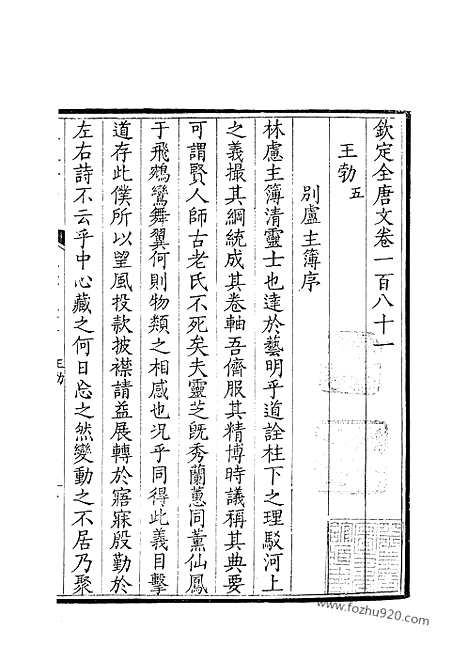 欽定全唐文卷一百八十一
王勃五
別盧主簿序
林慮主簿清靈士也達於藝明乎道詮柱下之理駁河上
之義撮其綱統成其卷軸吾儕服其精博時議稱其典要
可謂賢人師古老氏不死矣夫靈芝既秀蘭蕙同薰仙鳳
于飛鵷鸞舞翼何則物類之相感也況乎同得此義目擊
道存此僕所以望風投款披襟請益展轉於寤寐殷勤於
左右詩不云乎中心藏之何日忘之然變動之不居乃聚
王勃
www.fozhu920.com